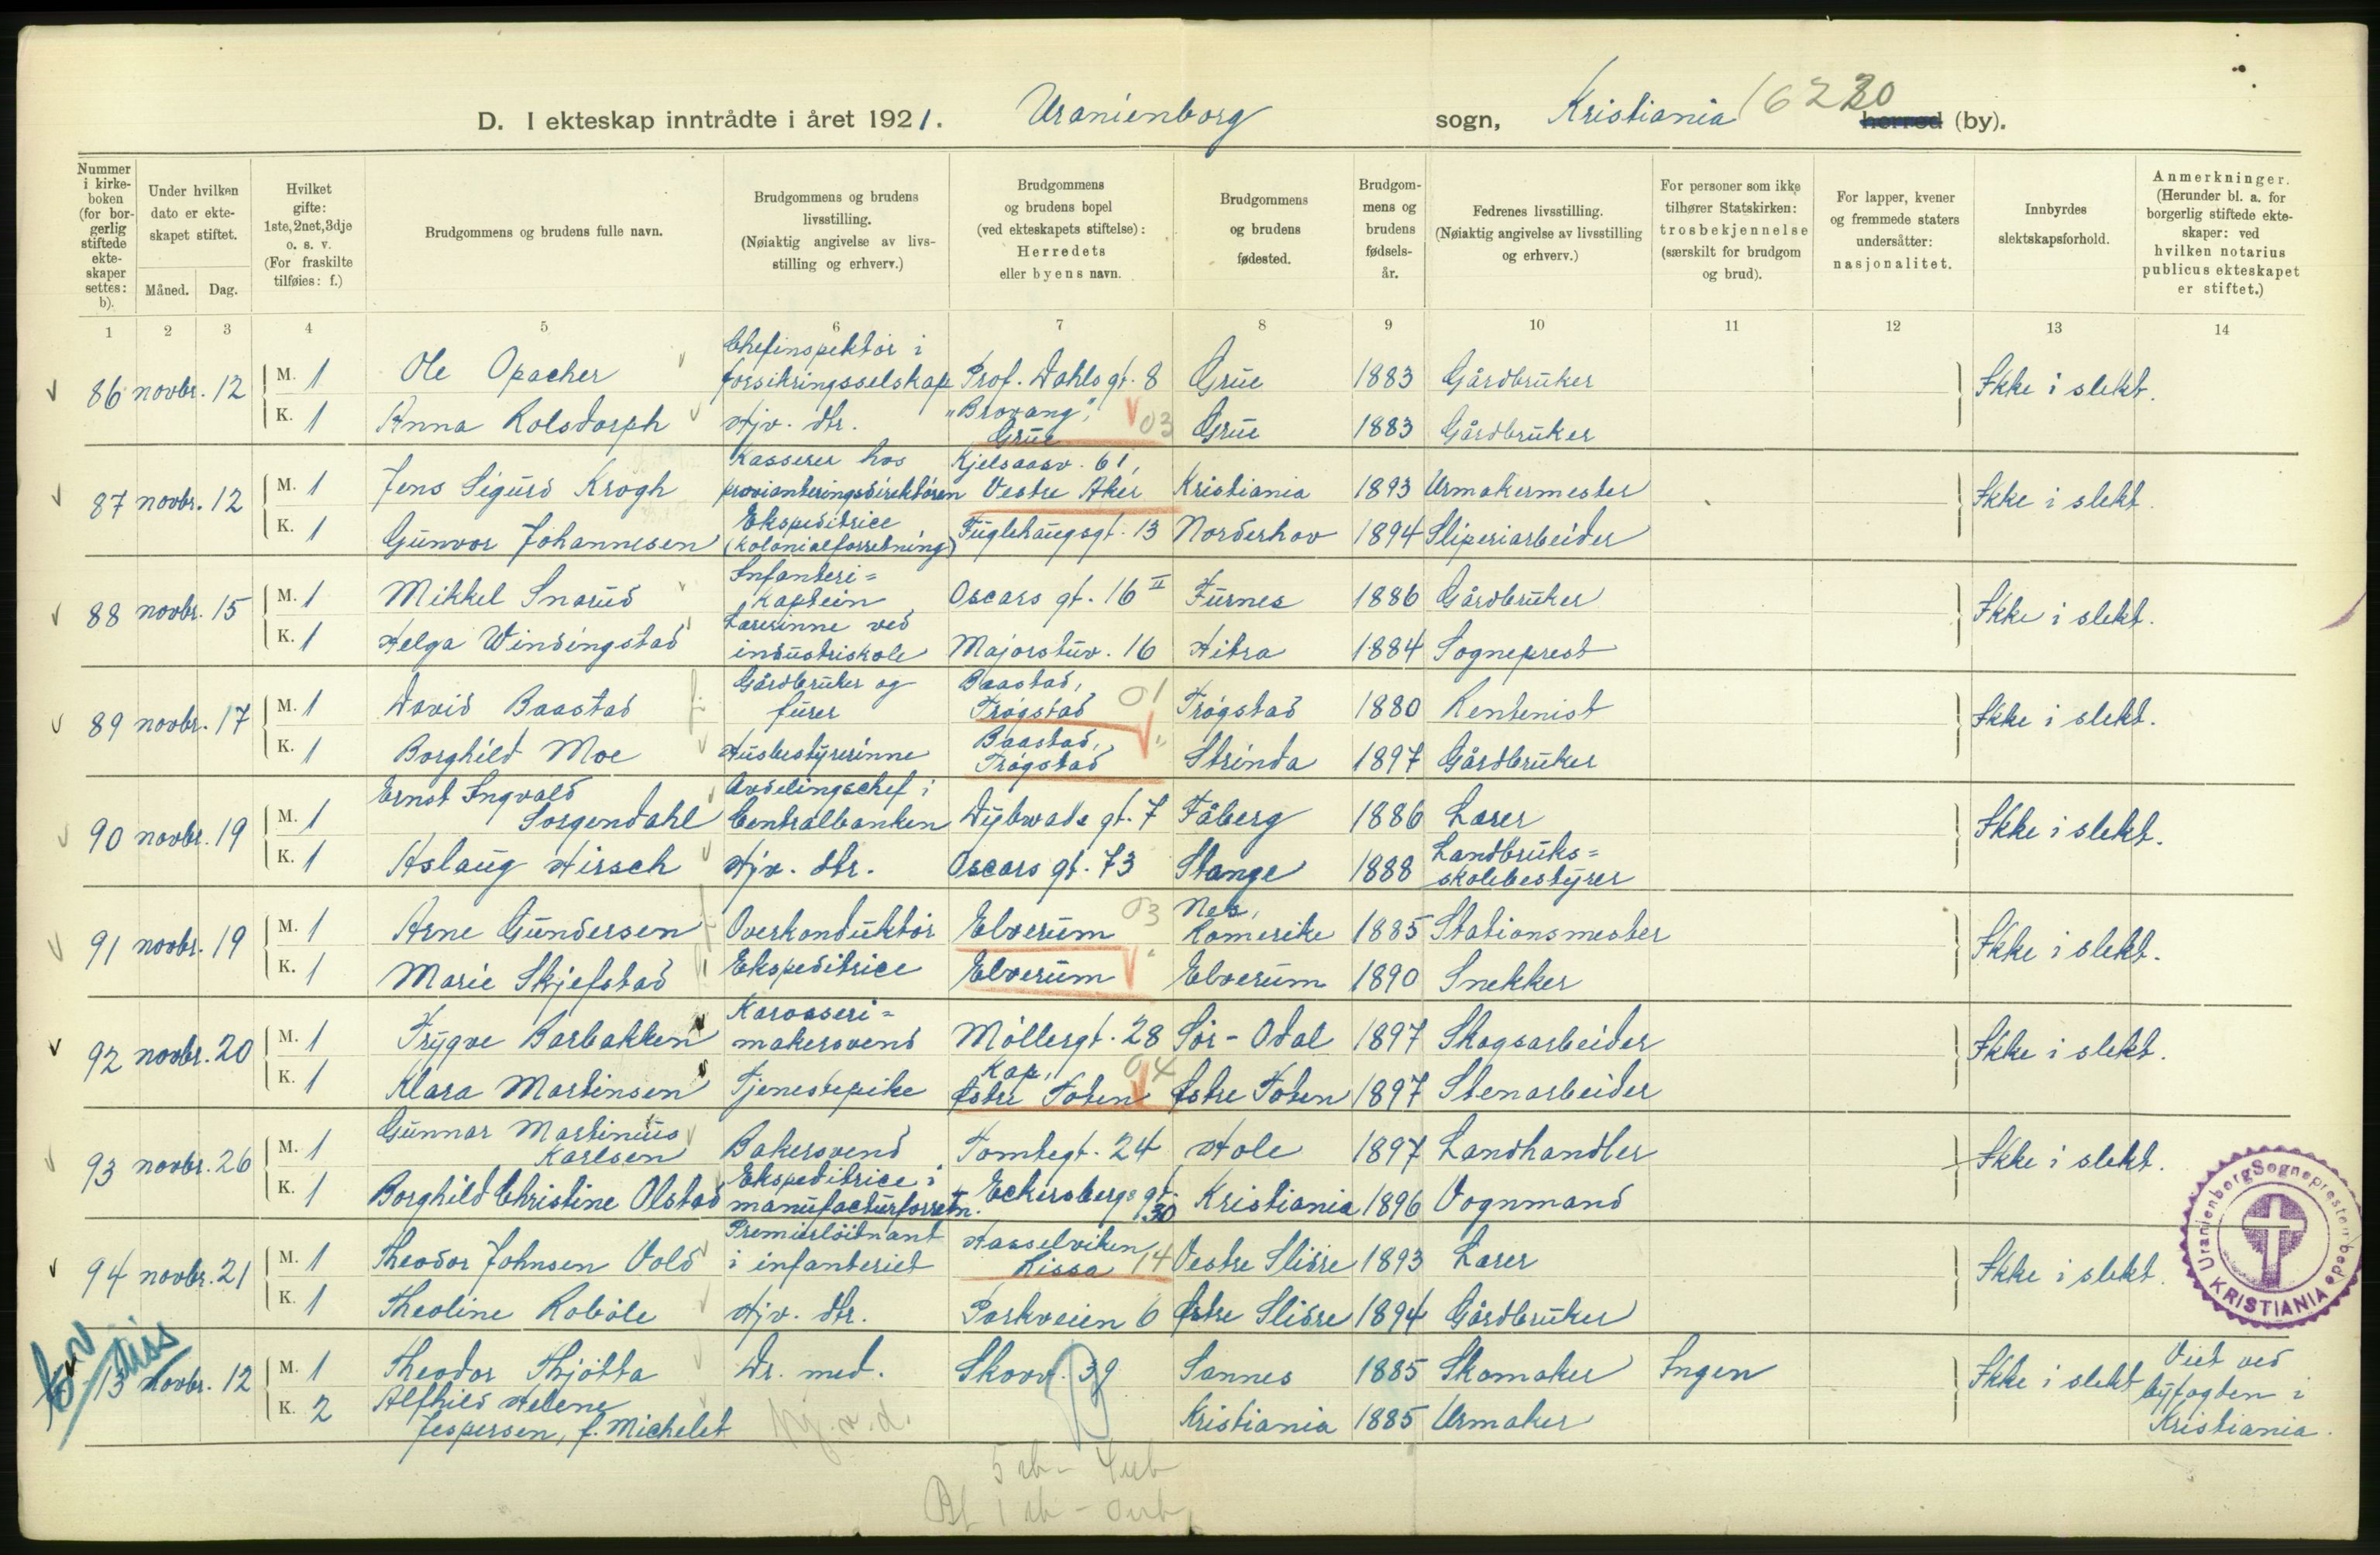 D. I ekteskap inntrådte i året 1921. Uranienborg sogn, Kristiania herred (by).
Nummer i kirkeboken (for borgerlig stiftede ekteskaper settes: b).
Under hvilken dato er ekteskapet stiftet.
Måned. Dag.
Hvilket gifte: 1ste, 2net, 3dje o. s. v. (For fraskilte tilføies: f.)
Brudgommens og brudens fulle navn.
Brudgommens og brudens livsstilling. (Nøiaktig angivelse av livsstilling og erhverv.)
Brudgommens og brudens bopel (ved ekteskapets stiftelse): Herredets eller byens navn.
Brudgommens og brudens fødested.
Brudgommens og brudens fødselsår.
Fedrenes livsstilling. (Nøiaktig angivelse av livsstilling og erhverv.)
For personer som ikke tilhører Statskirken: trosbekjennelse (særskilt for brudgom og brud).
For lapper, kvener og fremmede staters undersåtter: nasjonalitet.
Innbyrdes slektskapsforhold.
Anmerkninger. (Herunder bl. a. for borgerlig stiftede ekteskaper: ved hvilken notarius publicus ekteskapet er stiftet.)
1 2 3 4 5 6 7 8 9 10 11 12 13 14
86 novbr. 12 M. 1 Ole Opacher Chefinspektør i forsikringsselskap Prof. Dahls gt. 8 Grue 1883 Gårdbruker Ikke i slekt.
K. 1 Anna Rolsdorph Hjv. dtr. "Brovang", Grue 03 Grue 1883 Gårdbruker
87 novbr. 12 M. 1 Jens Sigurd Krogh Kasserer hos provianteringsdirektøren Kjelsaasv. 61, Vestre Aker Kristiania 1893 Urmakermester Ikke i slekt.
K. 1 Gunvor Johannesen Ekspeditrice (kolonialforretning) Fuglehaugsgt. 13 Norderhov 1894 Sliperiarbeider
88 novbr. 15 M. 1 Mikkel Snarud Infanteri=kaptein Oscars gt. 16 II Furnes 1886 Gårdbruker Ikke i slekt.
K. 1 Helga Windingstad Lærerinne ved industriskole Majorstuv. 16 Hitra 1884 Sogneprest
89 novbr. 17 M. 1 David Baastad Gårdbruker og furer Baastad, Trøgstad 01 Trøgstad 1880 Rentenist Ikke i slekt.
K. 1 Borghild Moe Husbestyrerinne Baastad, Trøgstad " Strinda 1897 Gårdbruker
90 novbr. 19 M. 1 Ernst Ingvald Sorgendahl Avdelingschef i Centralbanken Dybwads gt. 7 Fåberg 1886 Lærer Ikke i slekt.
K. 1 Aslaug Hirsch Hjv. dtr. Oscars gt. 73 Stange 1888 Landbruks=skolebestyrer
91 novbr. 19 M. 1 Arne Gundersen Overkonduktør Elverum 03 Nes, Romerike 1885 Stationsmester Ikke i slekt.
K. 1 Marie Skjefstad Ekspeditrice Elverum " Elverum 1890 Snekker
92 novbr. 20 M. 1 Trygve Barbakken Karosseri=makersvend Møllergt. 28 Sør-Odal 1897 Skogsarbeider Ikke i slekt.
K. 1 Klara Martinsen Tjenestepike Kap, Østre Toten 04 Østre Toten 1897 Stenarbeider
93 novbr. 26 M. 1 Gunnar Martinius Karlsen Bakersvend Tomtegt. 24 Hole 1897 Landhandler Ikke i slekt.
K. 1 Borghild Christine Olstad Ekspeditrice i manufacturforretn. Eckersbergs gt. 30 Kristiania 1896 Vognmand
94 novbr. 21 M. 1 Theodor Johnsen Vold Premierløitnant i infanteriet Hasselviken Rissa 14 Vestre Slidre 1893 Lærer Ikke i slekt.
K. 1 Theoline Robøle Hjv. dtr. Parkveien 6 Østre Slidre 1894 Gårdbruker
13 novbr. 12 M. 1 Theodor Thjøtta Dr. med. Skovv. 39 Sannes 1885 Skomaker Ingen Ikke i slekt Viet ved byfogden i Kristiania.
K. 2 Alfhild Helene Jespersen, f. Michelet hj.v.d. Kristiania 1885 Urmaker
Uranienborg Sogneprestembede KRISTIANIA